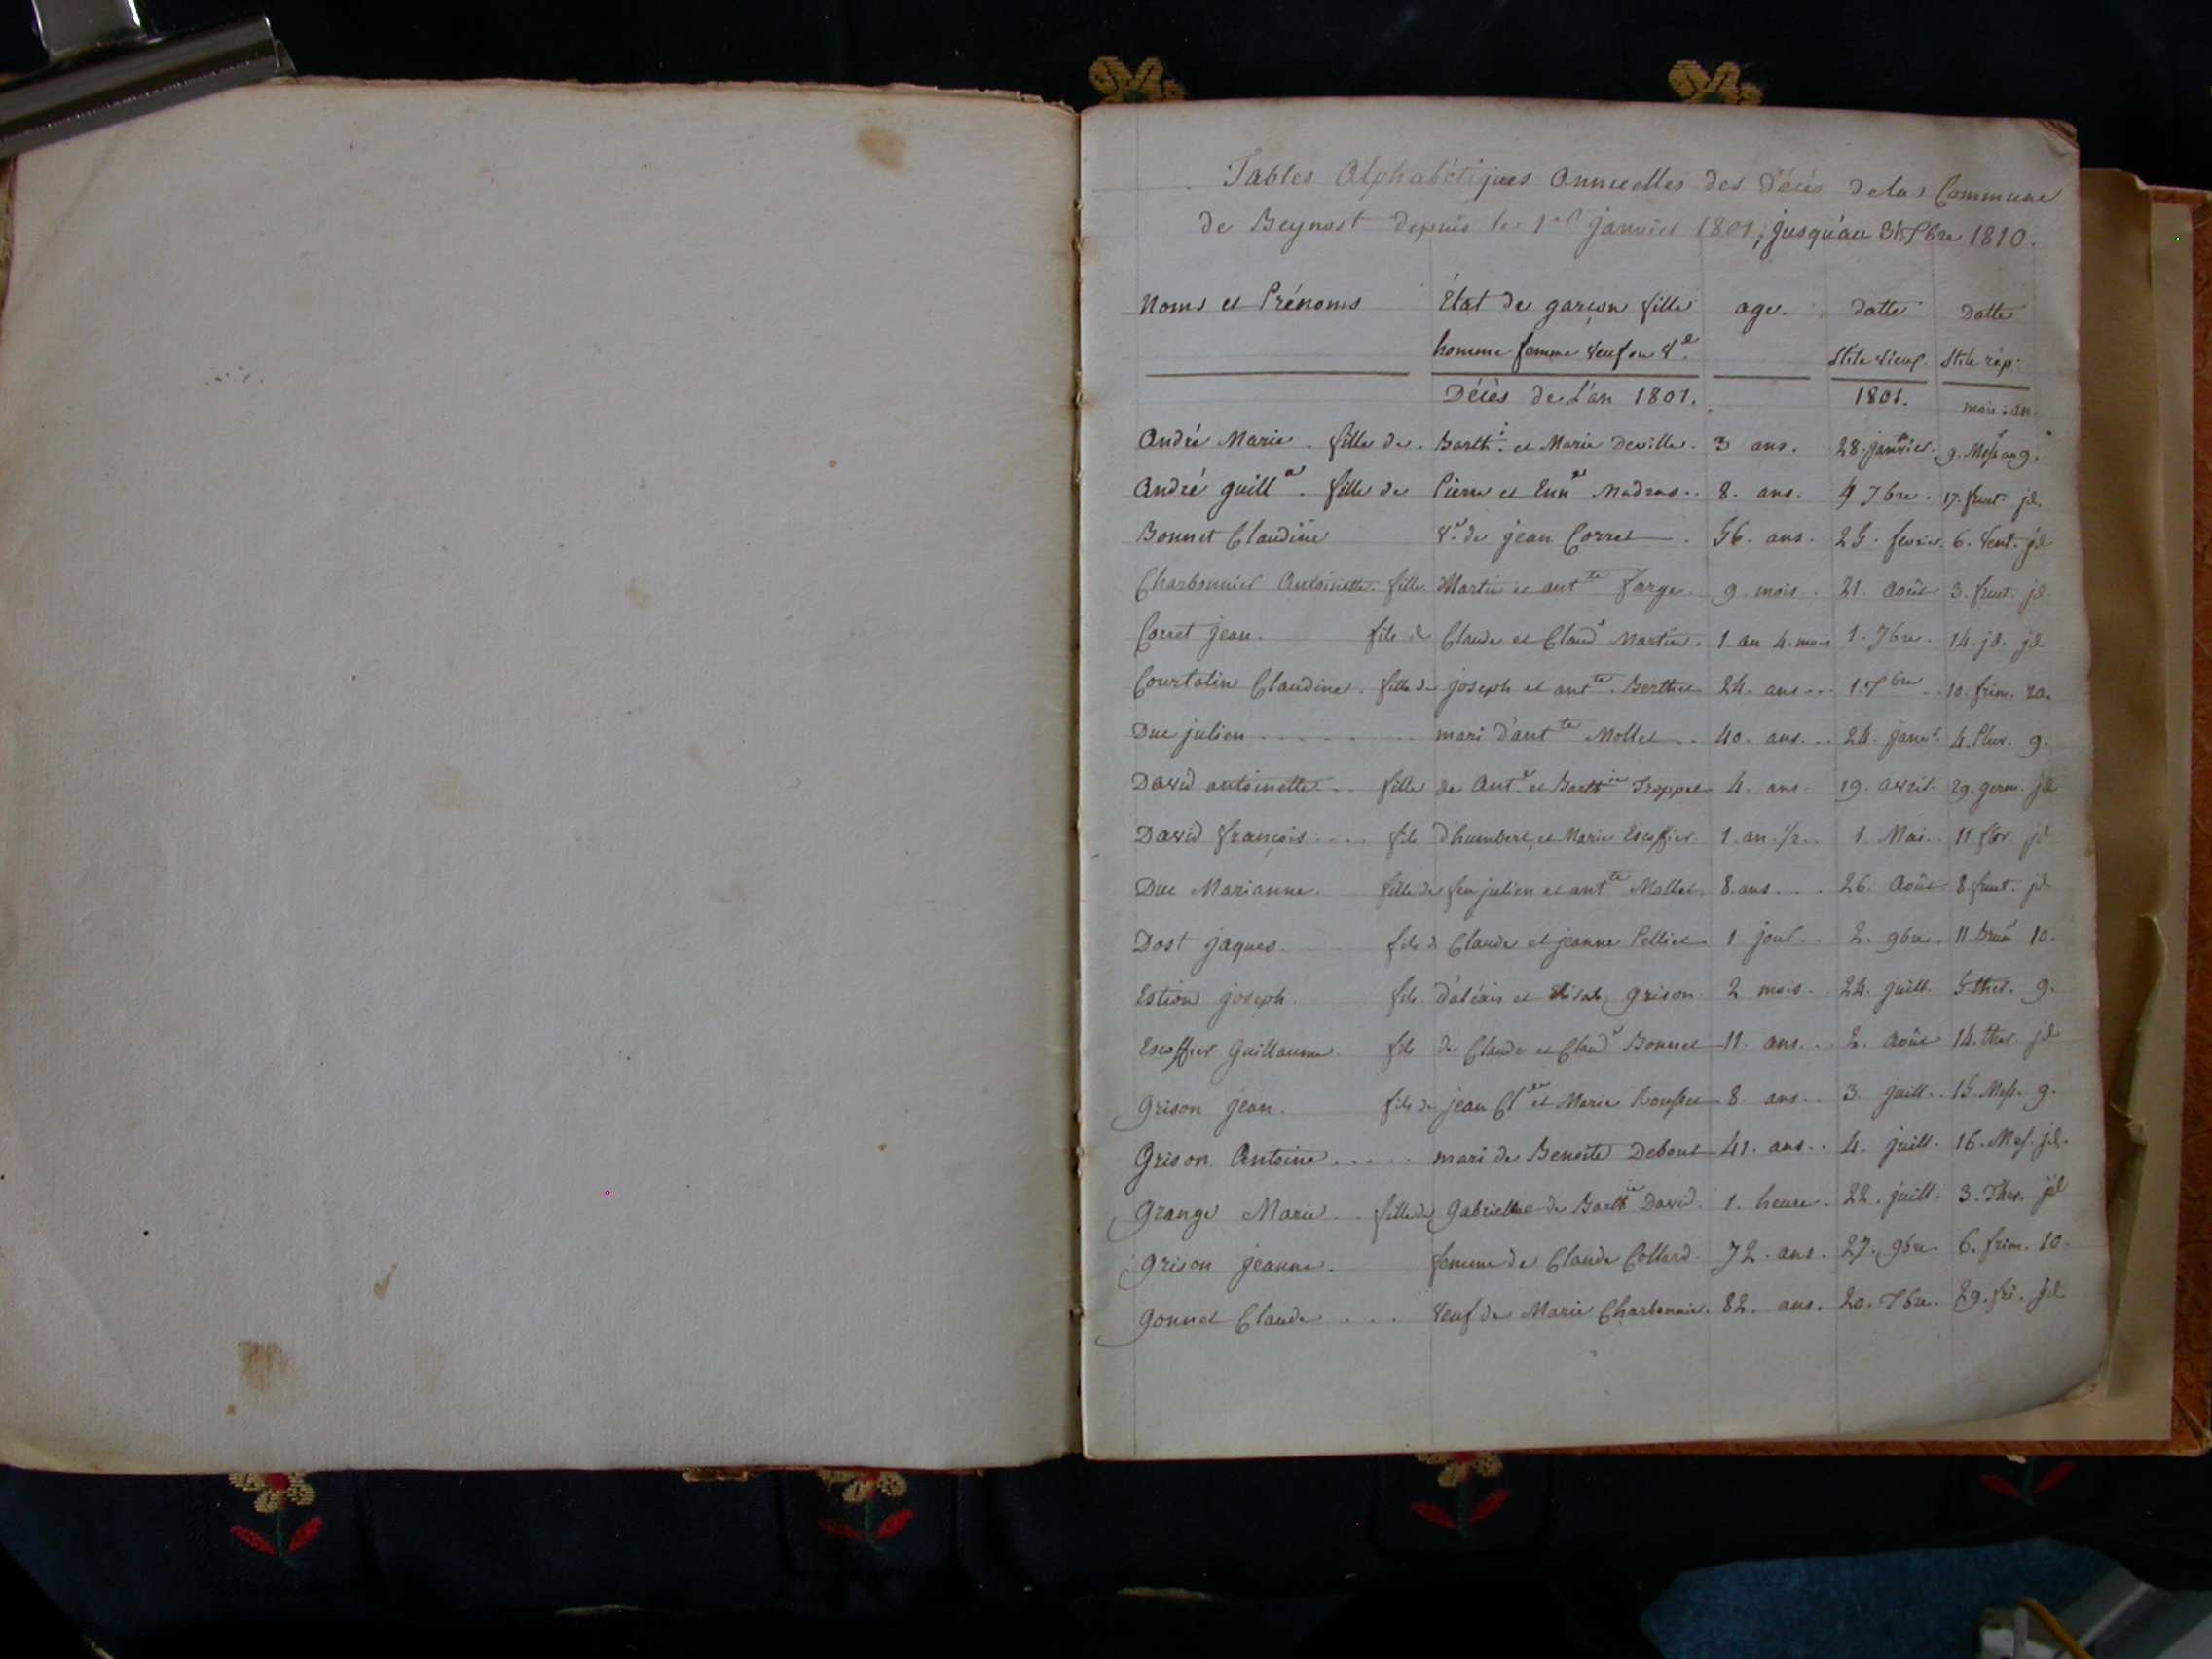 Tables Alphabétiques Annuelles des Décès dela Commune
de Beynost depuis le 1er janvier 1801, jusqu'au 31 Xbre 1810.
Noms et Prénoms État de garçon fille age. datte Datte
homme femme veuf ou Ve Stile vieux. Stile rép.
Décès de L'an 1801. 1801. mois: an.
André Marie. fille de. Barth. et Marie Deville. 3 ans. 28. janvier. 9. an 9.
André guill. fille de Pierre et Madras.. 8. ans. 4 7bre. 17. fruct. jd.
Bonnet Claudine Ve de jean Corret. 56. ans. 25. fevrier. 6. Vent. jd
Charbonnier Antoinette. fille Martin et antte farge. 9. mois.. 21. Août 3. fruct. jd
Corret jean. fils de Claude et Claude Martin. 1 an 4. mois 1. 7bre. 14. jd. jd
Courtatin Claudine. fille de joseph et antte. Berthet 24. ans... 1. bre.. 10. frim. 10.
Duc julien mari d'antte Mollet.. 40. ans... 24. janvr. 4. Pluv. 9.
David antoinette.. fille de Ant. et Barthie 4. ans. 19. avril. 29. germ. jd
David françois.... fils d'humbert, et Marie Escoffier. 1. an. 1/2.. 1. Mai.. 11 flor. jd
Duc Marianne. fille de feu julien et antte Mollet. 8. ans.... 26. Août 8. fruct. jd
Dost jaques. fils de Claude et jeanne Pelliet 1 jour.. 2. 9bre. 11. Brum 10.
Estion joseph. fils. d'aléxis et Elisab. grison 2 mois.. 24. juill. 5. ther. 9.
Escoffier Guillaume. fils de Claude et Claude Bonnet 11. ans... 2. Août 14. ther. jd
Grison jean. fils de jean Cl et Marie 8 ans.. 3. juill.. 15. Mess. 9.
Grison Antoine..... mari de Benoite Debout 41. ans.. 4. juill. 16. Mes. jd.
Grange Marie.. fille de Gabriel de Barthie David. 1. heure. 22. juill. 3. Ther. jd
Grison jeanne. femme de Claude Collard. 72. ans. 27. 9bre 6. frim. 10.
Gonnet Claude... Veuf de Marie Charbonnier. 82. ans. 20. bre. 29. fri. jd